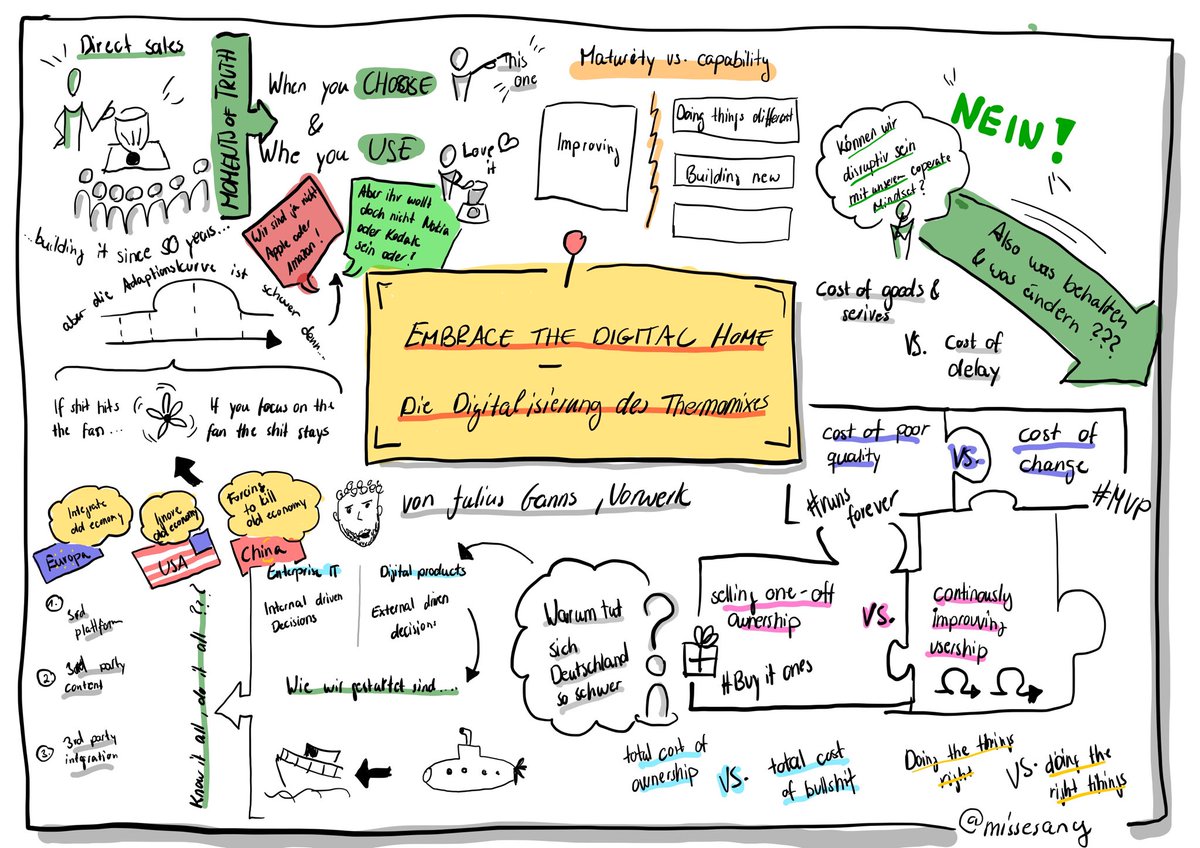 Direct sales
MOMENTS OF TRUTH
When you CHOOSE
&
Whe you USE
This
one
Love
it
...building it since 90 years...
aber die Adaptionskurve ist
schwer denn...
Wir sind ja nicht
Apple oder
Amazon!
Aber ihr wollt
doch nicht Nokia
oder Kodak
sein oder?
Maturity vs. capability
Improving
Doing things different
Building new
Können wir
disruptiv sein
mit unserem coperate
Mindset?
NEIN!
Also was behalten
& was ändern ???
cost of goods &
serives
VS. cost of
delay
EMBRACE THE DIGITAL HOME
–
Die Digitalisierung des Thermomixes
von Julius Ganns, Vorwerk
If shit hits
the fan...
If you focus on the
fan the shit stays
Integrate
old economy
Europa
Ignore
old economy
USA
Forcing
to kill
old economy
China
1. 3rd
plattform
2. 3rd party
content
3. 3rd party
intgration
Know it all, do it all ???
Enterprise IT
Internal driven
Decisions
Digital products
External driven
decision:
Wie wir gestartet sind....
Warum tut
sich
Deutschland
so schwer
?
cost of poor
quality
VS.
cost of
change
#runs
forever
#MVP
selling one-off
ownership
VS.
continously
improwing
usership
#Buy it ones
total cost of
ownership
VS.
total cost
of bullshit
Doing the thins
right
VS.
doing the
right tihings
@missesang